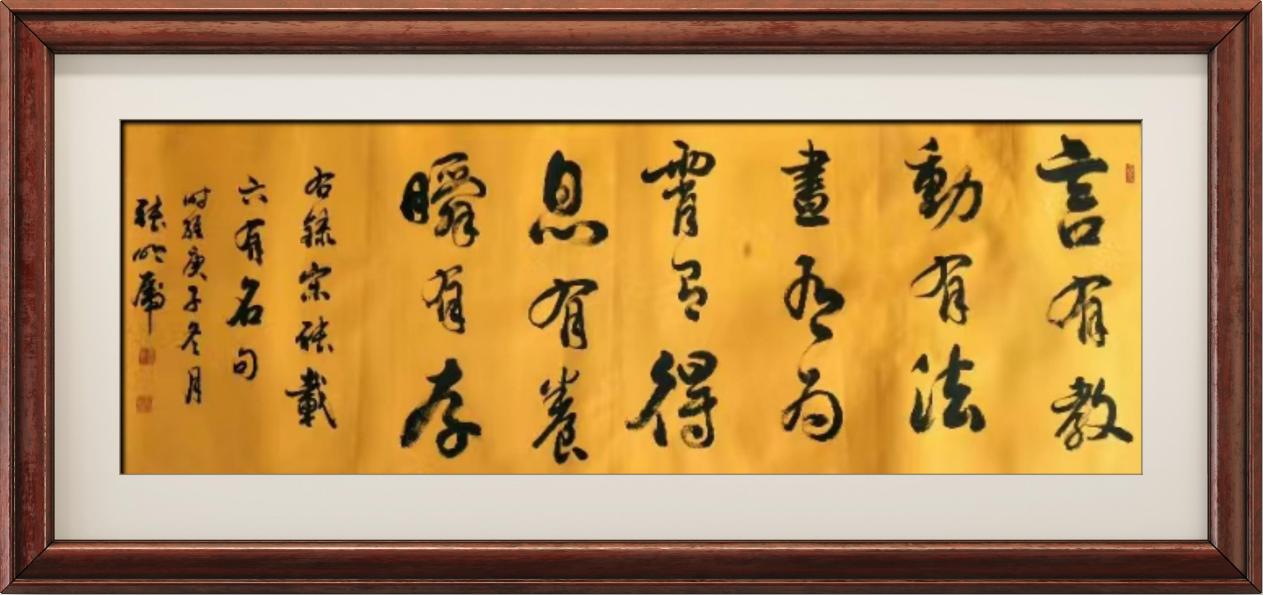 言有教
動有法
晝有為
霄有得
息有養
瞬有存
右錄宋張載
六有名句
時維庚子冬月
張